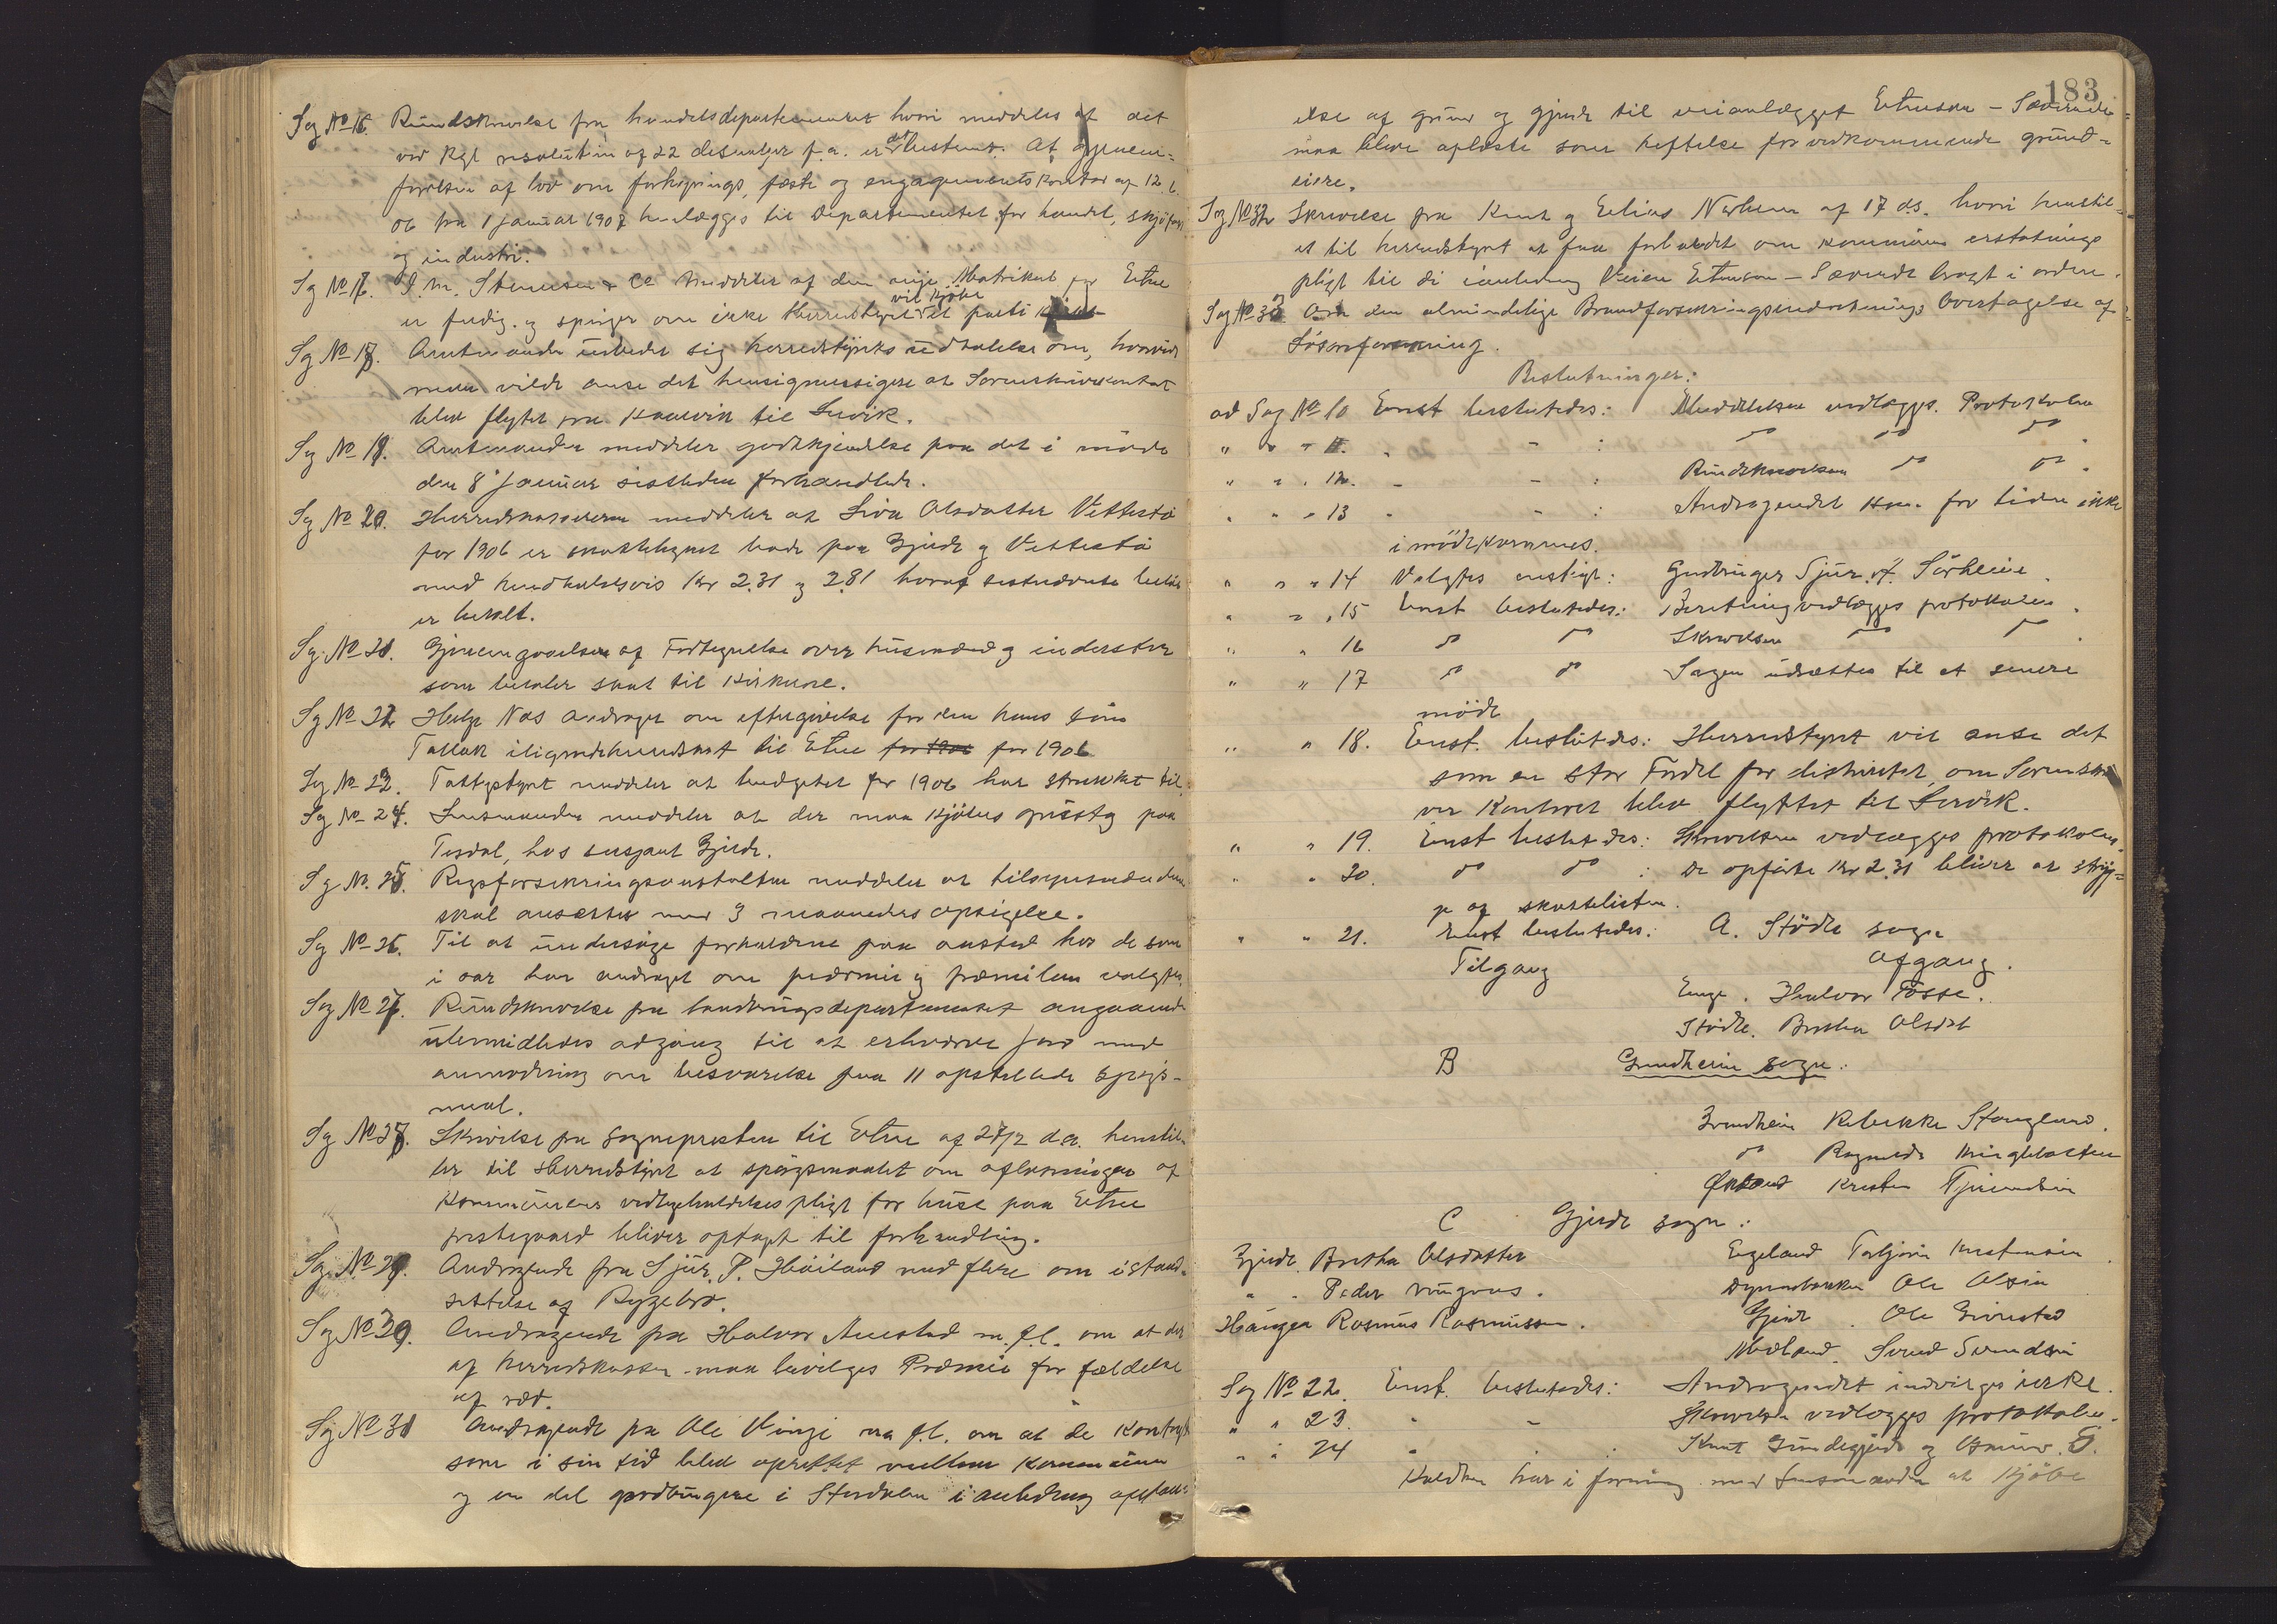 Sag No 16. Rundskrivelse fra handelsdepartementet hvori meddeles at det
ved Kgl resolution af 22 desember f.a. er det bestemt. At gjennem-
førelsen af lov om forhyrings, fæste og engagementskontor af 12.6.
06 fra 1 januar 1907 henlægges til Departementet for handel, skjøfart
og industri.
Sag No 17. J. M. Stenersen & Co meddeler at den nye Matrikul for Etne
er færdig. og spørger om ikke Herredstyret vil kjøbe et parti
Sag No 18. Amtmanden udbeder sig herredstyrets udtalelse om, hvorvidt
man vilde anse det hensigmessigere at Sorenskriverkontoret
blev flytet fra Kaarvik til Lervik.
Sag No 19. Amtmanden meddeler godkjendelse paa det i møde
den 8 Januar sistleden forhandlede.
Sag No 20. Herredskassereren meddeler at Siva Olsdatter Vettestø
for 1906 er skattelignet bade paa Gjerde og Vettestø
med henholdsvis Kr 2.31 og 2.81 hvoraf sistnævnte beløb
er betalt.
Sag No 21. Gjennemgaaelse af Fortegnelse over husmænd og inderster
som betaler skat til Kirkerne.
Sag No 22. Helge Næs andrager om eftergivelse for den hans søn
Tallak ilignede herredskat til Etne for 1906 for 1906
Sag No 23. Fattigstyret meddeler at budgetet for 1906 har strukket til.
Sag No 24. Lensmanden meddeler at der maa kjøbes grustag paa
Tesdal, hos sersjant Gjerde.
Sag No. 25. Rigsforsikringsanstalten meddeler at tilsynsmændene
skal ansættes med 3 maaneders opsigelse.
Sag No 26. Til at undersøge forholdene paa aasted hos de som
i aar har andraget om præmie og præmielaan valgtes
Sag No 27. Rundskrivelse fra landbrugsdepartementet angaaende
ubemidledes adgang til at erhverve jord med
anmodning om besvarelse paa 11 opstillede spørgs-
maal.
Sag No 28. Skrivelse fra sognepresten til Etne af 27/2 d.a. henstil-
ler til Herredstyret at spørgsmaalet om afløsningen af
Kommunens vedligeholdelsespligt for huse paa Etne
prestegaard bliver optaget til forhandling.
Sag No 29. Andragende fra Sjur P. Høiland med flere om istand-
settelse af Rygebro.
Sag No 30. Andragende fra Halvor Austad m.fl. om at der
af herredskassen maa bevilges Præmie for fældelse
af ræv.
Sag No 31 Andragende fra Ole Vinge m.fl. om at de Kontrakter
som i sin tid blev oprettet mellem Kommunen
og en del gardbrugere i Stordalen i anledning
183
else af grund og gjerde til veianlægget Etnesøen - Sævereide
maa blive aplæste som heftelse for vedkommende grund-
eiere.
Sag No 32 Skrivelse fra Knut og Elias Nerheim af 17 ds. hvori henstil-
les til herredstyret at faa forholdet om kommunens erstatnings
pligt til di i anledning Veien Etnesøen - Sævereide bragt i orden.
Sag No 33. Om den almindelige Brandforsikringsindretnings Overtagelse af
Løsøreforsikring.
Beslutninger:
ad Sag No 10 Enst besluttedes: Meddelelsen vedlægges. Protokolen
" " " 11. " - : do do do.
" " " 12. - - : Rundskrivelsen do do.
" " " 13 - - : Andragendet kan for tiden ikke
imødekommes.
" " " 14 Valgtes enstigt: Gardbruger Sjur Sørheim.
" " " 15 Enst besluttedes: Beretning vedlægges protokolen.
" " 16 do do Skrivelsen do do.
" " 17 do do Sagen udsættes til et senere
møde
" " 18. Enst. besluttedes: Herredstyret vil anse det
som en stor Fordel for distriktet, om Sorenskri
ver Kontoret blev flyttet til Lervik.
" " 19. Enst besluttedes: Skrivelsen vedlægges protokolen.
" " 20. do do : De opførte Kr 2.31 bliver at stry-
ge af skattelisten.
" " 21. Enst besluttedes: A. Stødle sogn
Tilgang Afgang.
Enge. Halvor Fosse.
Stødle. Bertha Olsdat
B Grindheim sogn.
Grindheim Rebekka Stangeland.
do Ragnilde Kringlebotten
Øktand Kristen
C Gjerde sogn:
Gjerde. Bretha Olsdatter Egeland Torbjørn Kristensen
" " Peder Magnus. Ole Olsen
Hauge Rasmus Rasmussen. Gjerde. Ole Grinested
Mæland. Svend Svendsen
Sag No 22. Enst. besluttedes: Andragendet indvilges ikke.
" " 23. " - Skrivelsen vedlægges protokolen.
" " 24 " . Knut Grindegjerde og Gunnar E.
Kaldheim har i forening med Lensmanden at Kjøbe